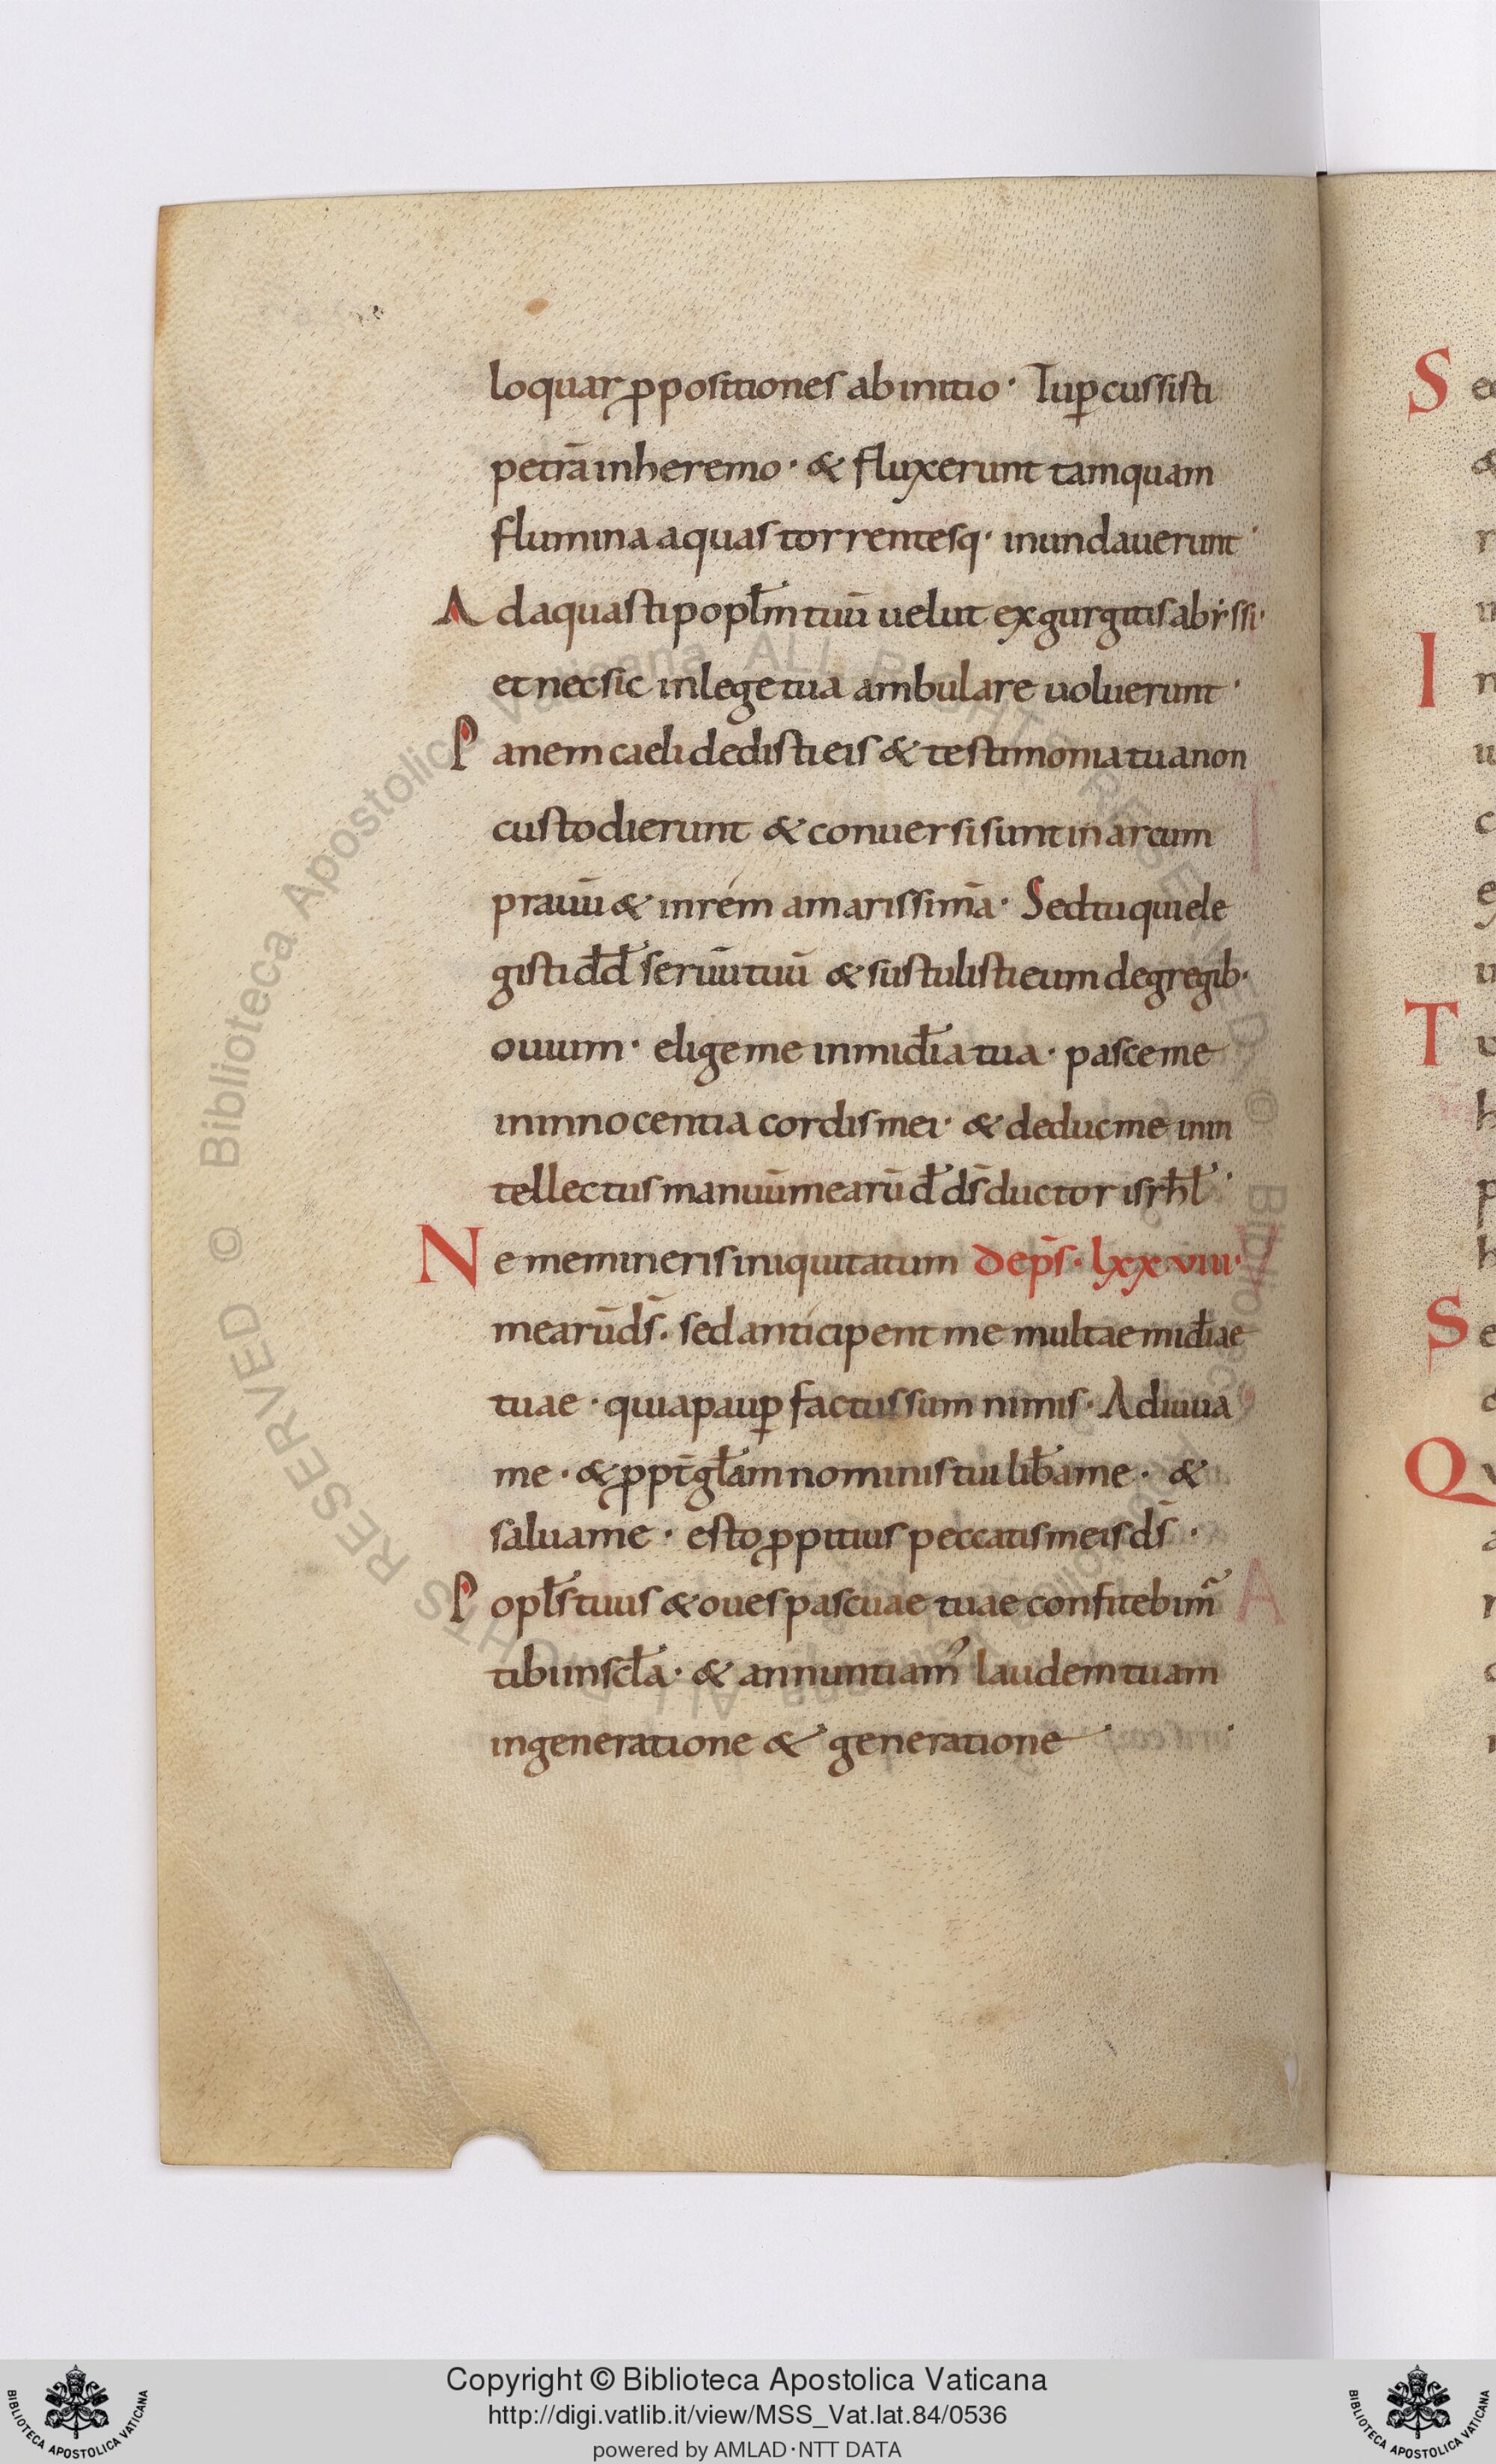 loquar ꝓpositiones ab initio · Tu ꝑcussisti
petrā in heremo · & fluxerunt tamquam
flumina aquas torrentesq· inundauerunt ·
Adaquasti popł̄m tuū uelut ex gurgitis abẏssi ·
et nec sic in lege tua ambulare uoluerunt ·
Panem caeli dedisti eis & testimonia tua non
custodierunt & conuersi sunt in arcum
prauū & in rém amarissimā · Sed tu qui ele
gisti dd̄ seruū tuū & sustulisti eum de gregib·
ouium · elige me in mid̄ia tua · pasce me
in innocentia cordis mei · & deduc me in in
tellectus manuū mearū d̄ ds̄ ductor isrhl̄ ·
Ne memineris iniquitatum De ps̄ · lxx·viii·
mearū ds̄ · sed anticipent me multae mid̄iae
tuae · quia pauꝑ factus sum nimis · Adiuua
me · & ꝓpt̄ gł̄am nominis tui lib̄a me · &
salua me · esto ꝓpitius peccatis meis ds̄ ·
Popł̄s tuus & oues pascuae tuae confitebim̃
tibi in scł̄a · & annuntiam᾿ laudem tuam
in generatione & generatione ·
S
I
T
S
Q
© Biblioteca Apostolica Vaticana ALL RIGHTS RESERVED © Biblioteca Apostolica Vaticana ALL RIGHTS RESERVED
BIBLIOTECA APOSTOLICA VATICANA
Copyright © Biblioteca Apostolica Vaticana
http://digi.vatlib.it/view/MSS_Vat.lat.84/0536
powered by AMLAD·NTT DATA
BIBLIOTECA APOSTOLICA VATICANA